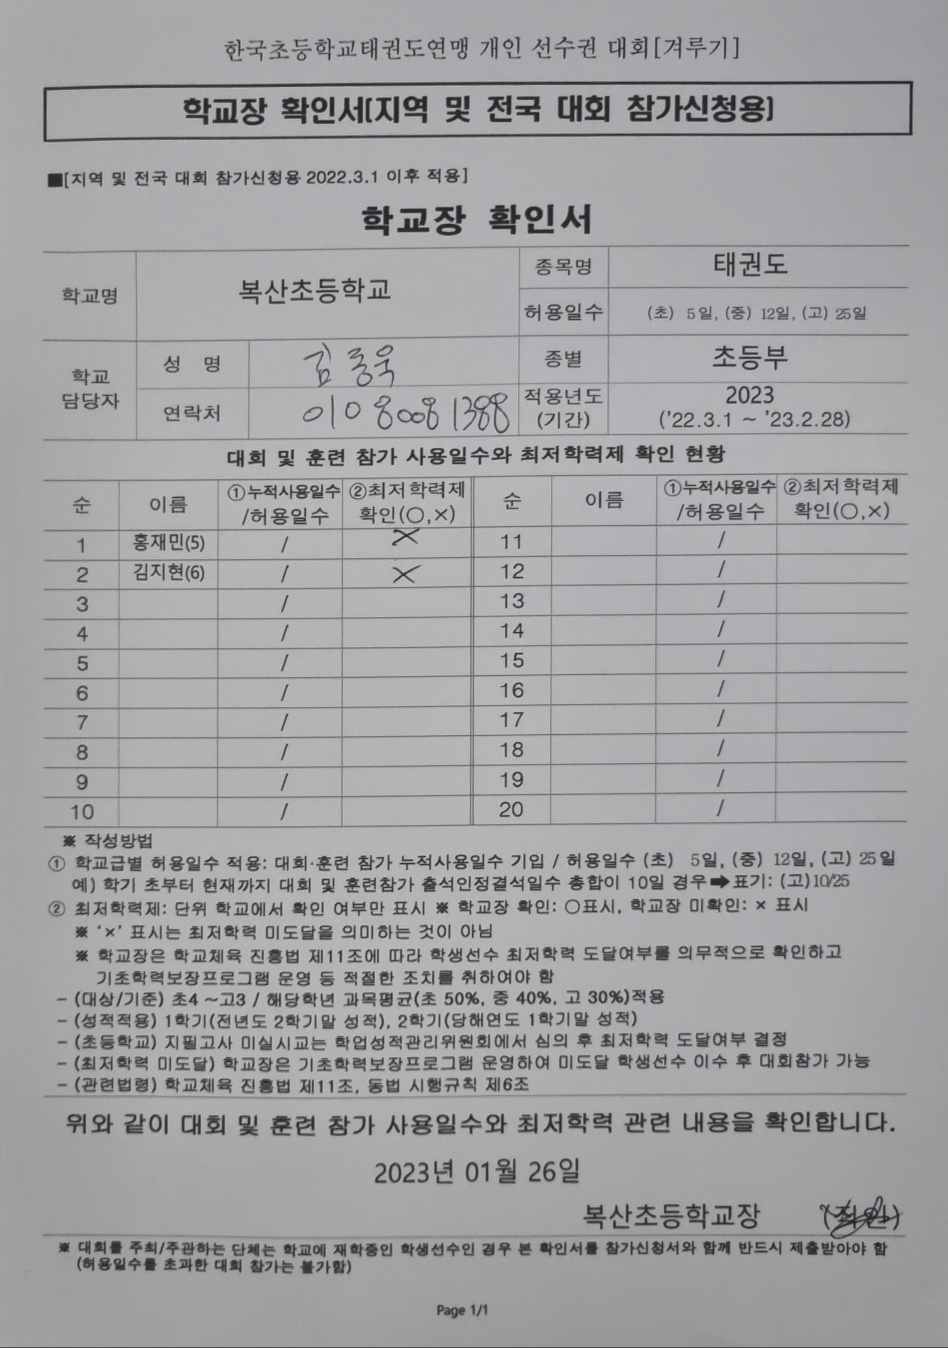 한국초등학교태권도연맹 개인 선수권 대회[겨루기]
학교장 확인서(지역 및 전국 대회 참가신청용)
■[지역 및 전국 대회 참가신청용 2022.3.1 이후 적용]
학교장 확인서
학교명 복산초등학교 종목명 태권도
허용일수 (초) 5일, (중) 12일, (고) 25일
학교 담당자 성 명 김동욱 종별 초등부
연락처 010 8008 1388 적용년도 (기간) 2023 ('22.3.1 ~ '23.2.28)
대회 및 훈련 참가 사용일수와 최저학력제 확인 현황
순 이름 ①누적사용일수 /허용일수 ②최저학력제 확인(○,×) 순 이름 ①누적사용일수 /허용일수 ②최저학력제 확인(○,×)
1 홍재민(5) / × 11 /
2 김지현(6) / × 12 /
3 / 13 /
4 / 14 /
5 / 15 /
6 / 16 /
7 / 17 /
8 / 18 /
9 / 19 /
10 / 20 /
※ 작성방법
① 학교급별 허용일수 적용: 대회·훈련 참가 누적사용일수 기입 / 허용일수 (초) 5일, (중) 12일, (고) 25일
예) 학기 초부터 현재까지 대회 및 훈련참가 출석인정결석일수 총합이 10일 경우➡표기: (고)10/25
② 최저학력제: 단위 학교에서 확인 여부만 표시 ※ 학교장 확인: ○표시, 학교장 미확인: × 표시
※ '×' 표시는 최저학력 미도달을 의미하는 것이 아님
※ 학교장은 학교체육 진흥법 제11조에 따라 학생선수 최저학력 도달여부를 의무적으로 확인하고
기초학력보장프로그램 운영 등 적절한 조치를 취하여야 함
- (대상/기준) 초4 ~고3 / 해당학년 과목평균(초 50%, 중 40%, 고 30%)적용
- (성적적용) 1학기(전년도 2학기말 성적), 2학기(당해연도 1학기말 성적)
- (초등학교) 지필고사 미실시교는 학업성적관리위원회에서 심의 후 최저학력 도달여부 결정
- (최저학력 미도달) 학교장은 기초학력보장프로그램 운영하여 미도달 학생선수 이수 후 대회참가 가능
- (관련법령) 학교체육 진흥법 제11조, 동법 시행규칙 제6조
위와 같이 대회 및 훈련 참가 사용일수와 최저학력 관련 내용을 확인합니다.
2023년 01월 26일
복산초등학교장 (직인)
※ 대회를 주최/주관하는 단체는 학교에 재학중인 학생선수인 경우 본 확인서를 참가신청서와 함께 반드시 제출받아야 함
(허용일수를 초과한 대회 참가는 불가함)
Page 1/1